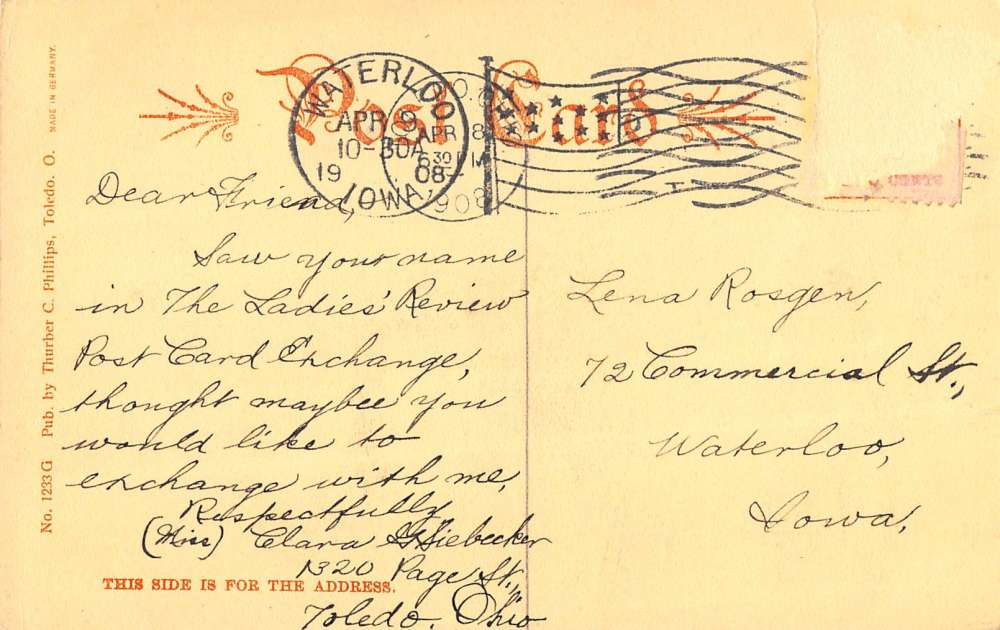 Post Card
WATERLOO
APR 9
10-30A
19 08
IOWA
APR 8
6 30 PM
1908
CENTS
No. 1233 G Pub. by Thurber C. Phillips, Toledo. O. MADE IN GERMANY.
Dear Friend,
Saw your name
in The Ladies' Review
Post Card Exchange,
thought maybee you
would like to
exchange with me,
Respectfully
(Miss) Clara
1320 Page St.,
Toledo, Ohio
THIS SIDE IS FOR THE ADDRESS.
Lena Rosgen,
72 Commercial St.,
Waterloo,
Iowa,